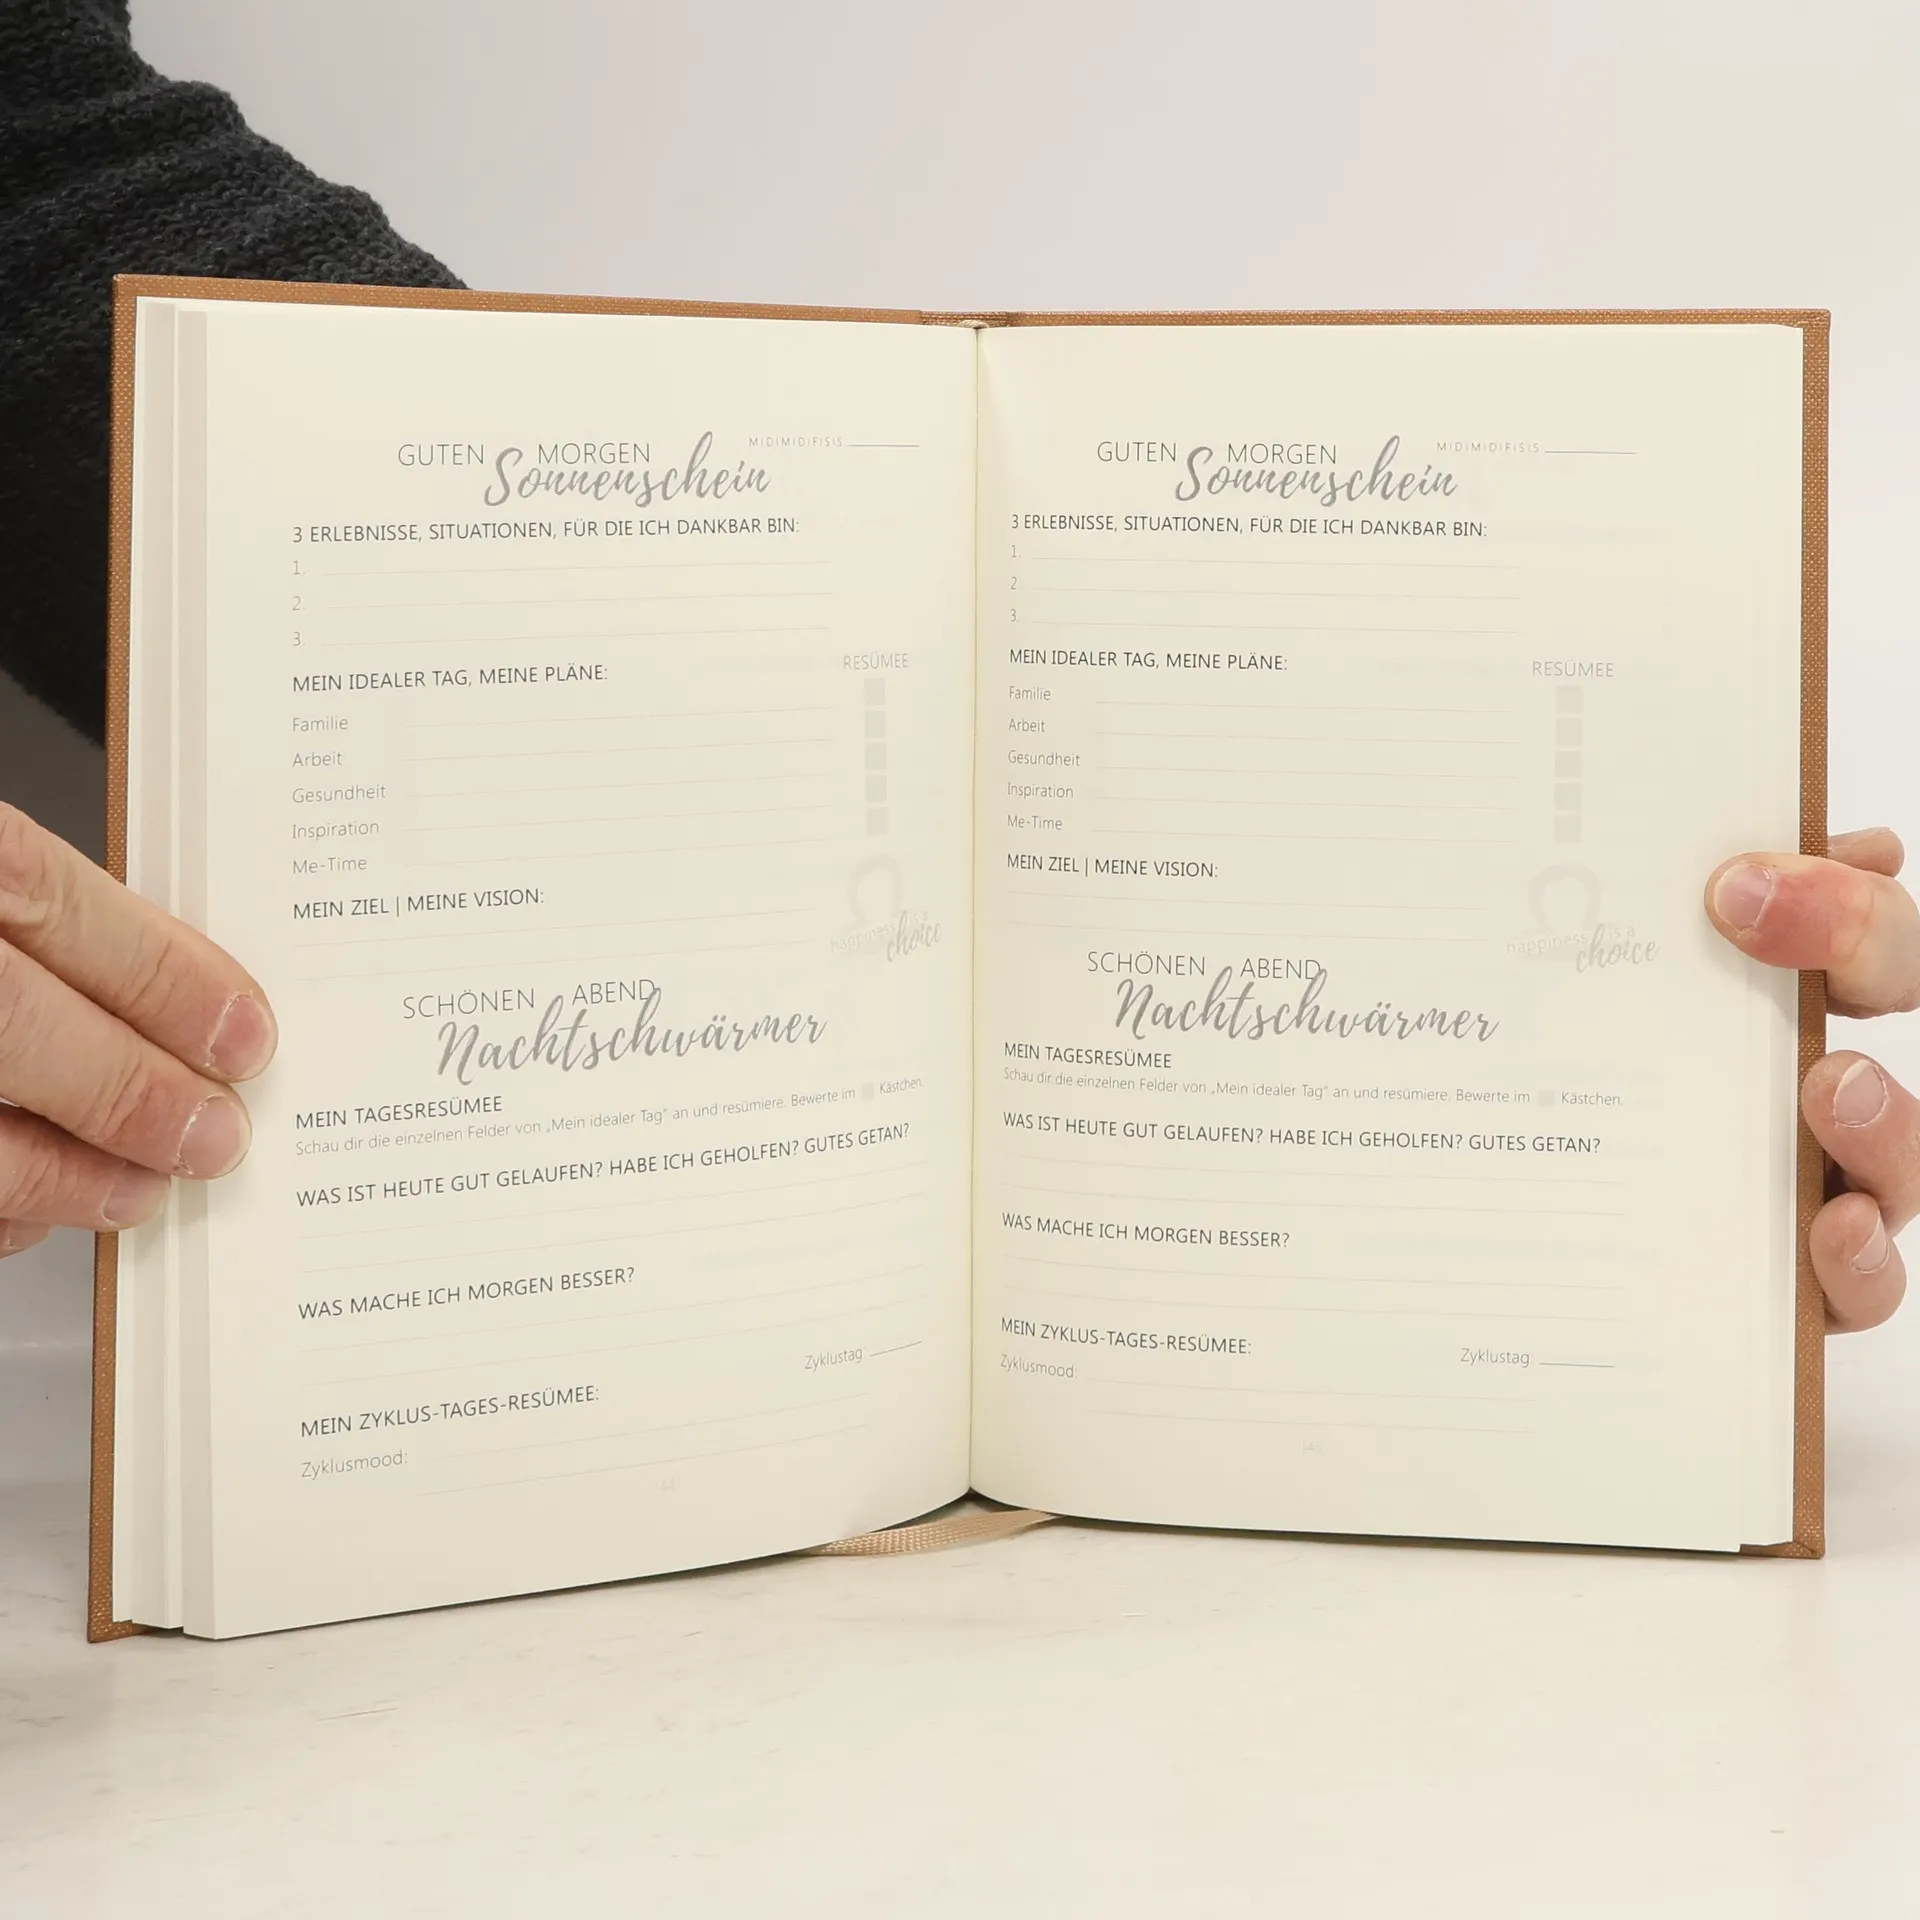 GUTEN MORGEN
Sonnenschein
M|D|M|D|F|S|S
3 ERLEBNISSE, SITUATIONEN, FÜR DIE ICH DANKBAR BIN:
1.
2.
3.
MEIN IDEALER TAG, MEINE PLÄNE:
RESÜMEE
Familie
Arbeit
Gesundheit
Inspiration
Me-Time
MEIN ZIEL | MEINE VISION:
happiness is a
choice
SCHÖNEN ABEND
Nachtschwärmer
MEIN TAGESRESÜMEE
Schau dir die einzelnen Felder von „Mein idealer Tag" an und resümiere. Bewerte im Kästchen.
WAS IST HEUTE GUT GELAUFEN? HABE ICH GEHOLFEN? GUTES GETAN?
WAS MACHE ICH MORGEN BESSER?
Zyklustag:
MEIN ZYKLUS-TAGES-RESÜMEE:
Zyklusmood:
144
GUTEN MORGEN
Sonnenschein
M|D|M|D|F|S|S
3 ERLEBNISSE, SITUATIONEN, FÜR DIE ICH DANKBAR BIN:
1.
2.
3.
MEIN IDEALER TAG, MEINE PLÄNE:
RESÜMEE
Familie
Arbeit
Gesundheit
Inspiration
Me-Time
MEIN ZIEL | MEINE VISION:
happiness is a
choice
SCHÖNEN ABEND
Nachtschwärmer
MEIN TAGESRESÜMEE
Schau dir die einzelnen Felder von „Mein idealer Tag" an und resümiere. Bewerte im Kästchen.
WAS IST HEUTE GUT GELAUFEN? HABE ICH GEHOLFEN? GUTES GETAN?
WAS MACHE ICH MORGEN BESSER?
MEIN ZYKLUS-TAGES-RESÜMEE:
Zyklustag:
Zyklusmood:
145